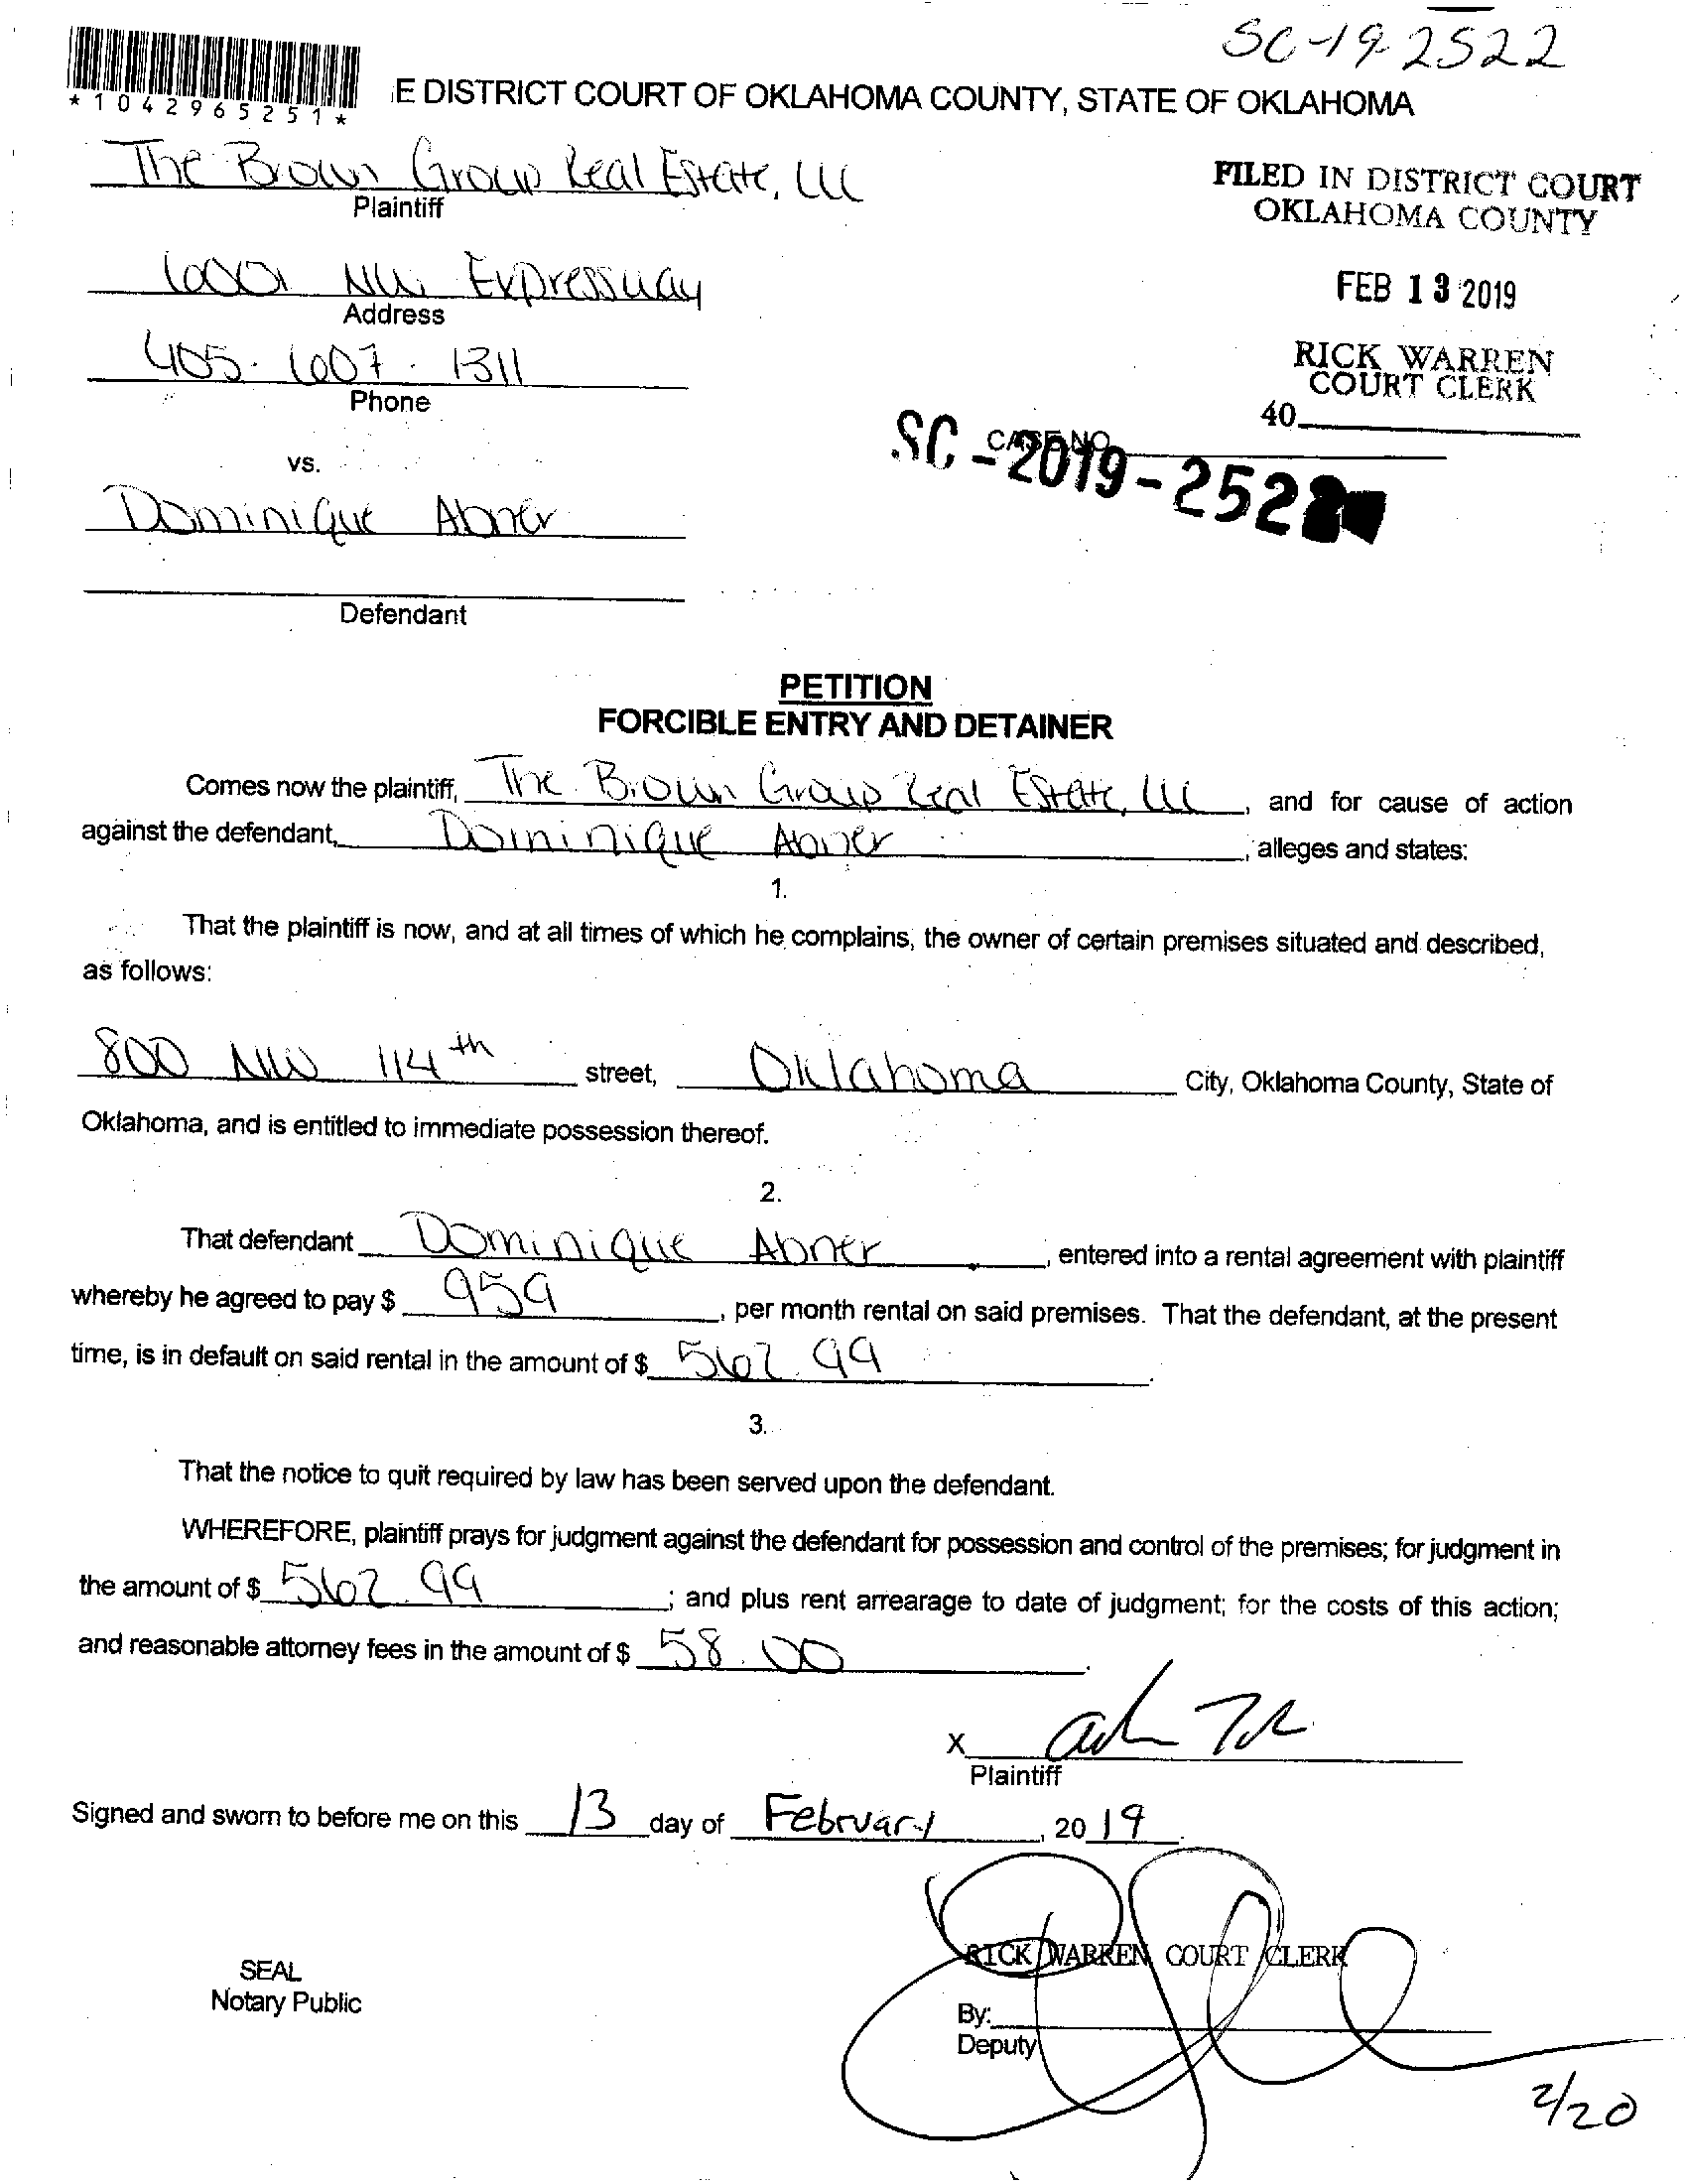 SC-19-2522
*1042965251*
E DISTRICT COURT OF OKLAHOMA COUNTY, STATE OF OKLAHOMA
The Brown Group Real Estate, LLC
Plaintiff
FILED IN DISTRICT COURT
OKLAHOMA COUNTY
6001 NW Expressway
Address
FEB 13 2019
405-607-1311
Phone
RICK WARREN
COURT CLERK
40
vs.
CASE NO.
SC-2019-2522
Dominique Abner
Defendant
PETITION
FORCIBLE ENTRY AND DETAINER
Comes now the plaintiff, The Brown Group Real Estate, LLC, and for cause of action
against the defendant, Dominique Abner, alleges and states:
1.
That the plaintiff is now, and at all times of which he complains, the owner of certain premises situated and described,
as follows:
800 NW 114th street, Oklahoma City, Oklahoma County, State of
Oklahoma, and is entitled to immediate possession thereof.
2.
That defendant Dominique Abner, entered into a rental agreement with plaintiff
whereby he agreed to pay $ 959, per month rental on said premises. That the defendant, at the present
time, is in default on said rental in the amount of $ 562.99.
3.
That the notice to quit required by law has been served upon the defendant.
WHEREFORE, plaintiff prays for judgment against the defendant for possession and control of the premises; for judgment in
the amount of $ 562.99; and plus rent arrearage to date of judgment; for the costs of this action;
and reasonable attorney fees in the amount of $ 58.00.
X
Plaintiff
Signed and sworn to before me on this 13 day of February, 2019.
SEAL
Notary Public
RICK WARREN COURT CLERK
By:
Deputy
2/20